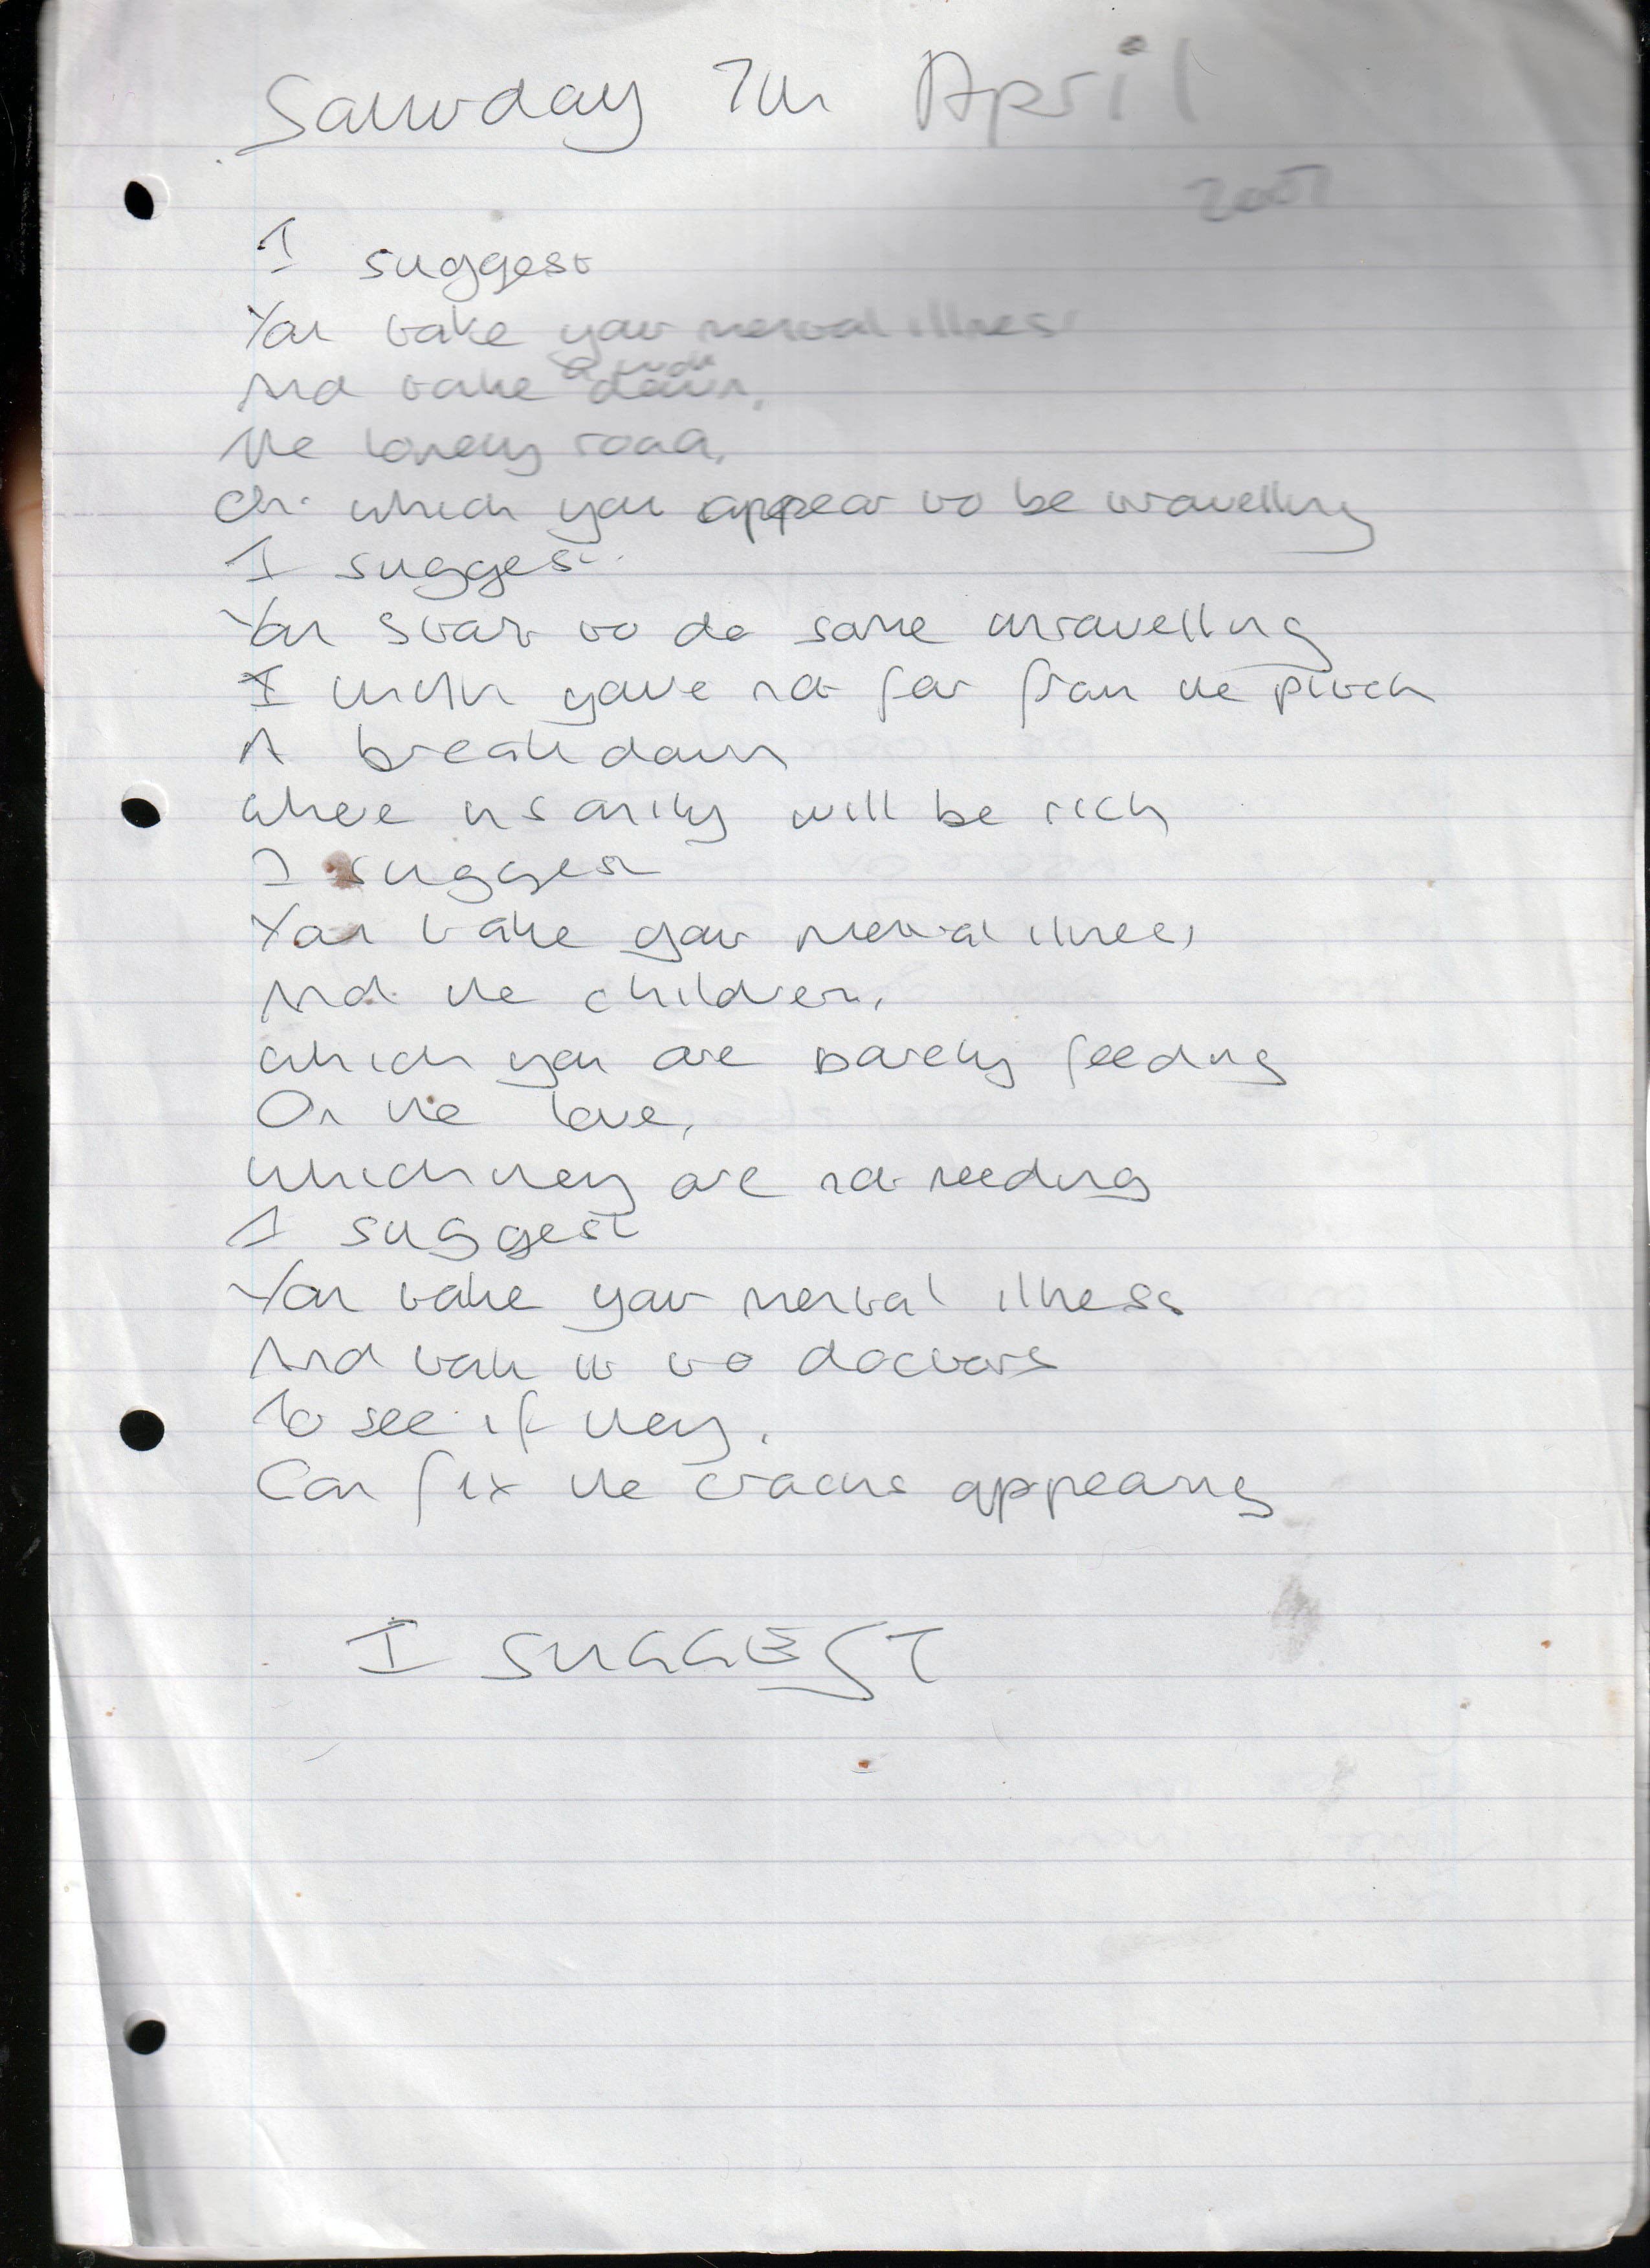 Saturday 7th April
2007
I suggest
You take your mental illness
And take a walk down,
The lonely road,
On which you appear to be travelling
I suggest
You start to do some unravelling
I think you're not far from the pitch
A breakdown
where insanity will be rich
I suggest
You take your mental illness
And the children,
which you are barely feeding
On the love,
which they are not needing
I suggest
You take your mental illness
And talk it to doctors
To see if they,
Can fix the cracks appearing
I SUGGEST